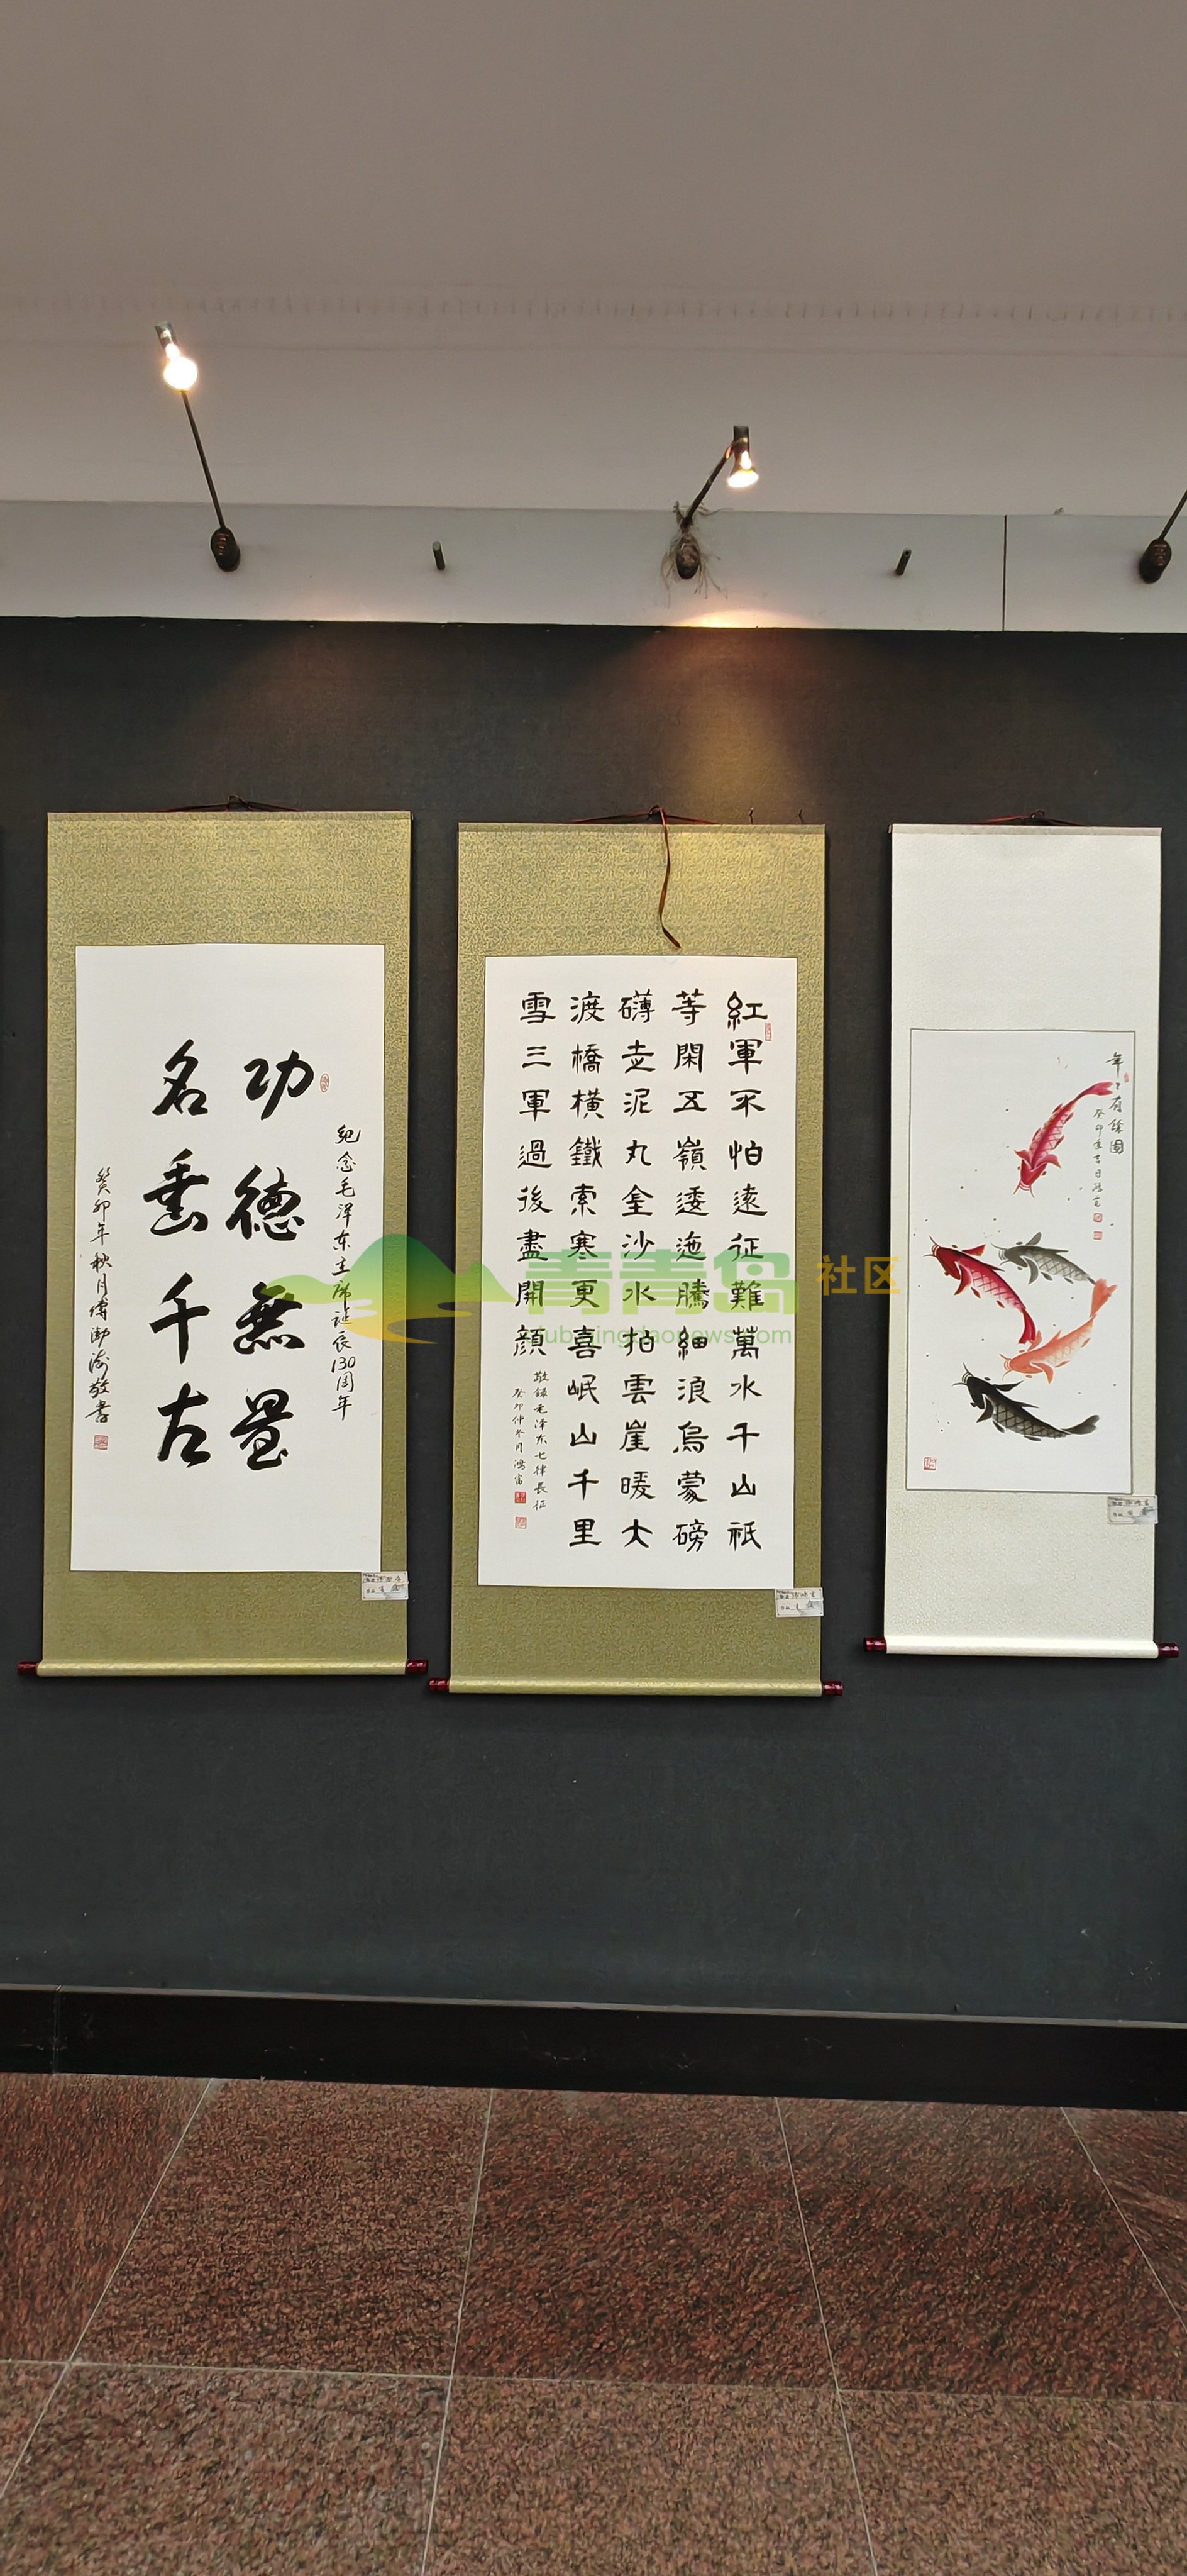 纪念毛泽东主席诞辰130周年
功德無量
名垂千古
癸卯年秋月傅渤海敬书
紅軍不怕遠征難萬水千山祇
等閑五嶺逶迤騰細浪烏蒙磅
礴走泥丸金沙水拍雲崖暖大
渡橋橫鐵索寒更喜岷山千里
雪三軍過後盡開顔
敬録毛泽东七律長征
癸卯仲冬月鴻富
年年有餘图
青青岛社区
club.qingdaonews.com